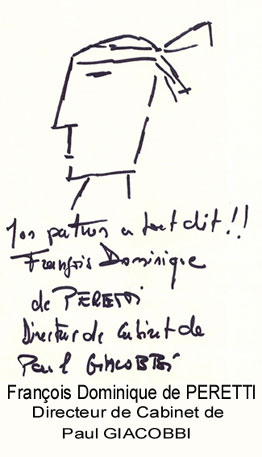 Mon patron a tout dit !!
François Dominique
de PERETTI
Directeur de Cabinet de
Paul GIACOBBI
François Dominique de PERETTI
Directeur de Cabinet de
Paul GIACOBBI